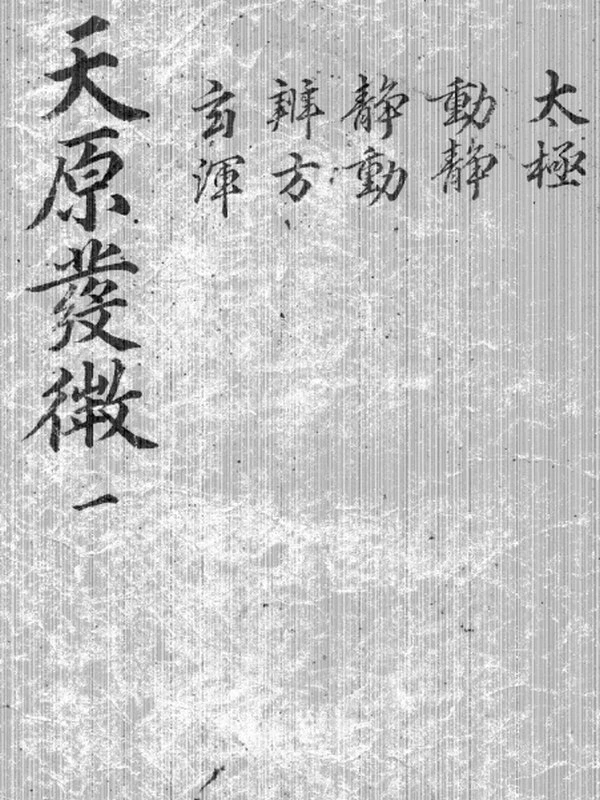 太極
動靜
靜動
辨方
玄渾
天原發微 一